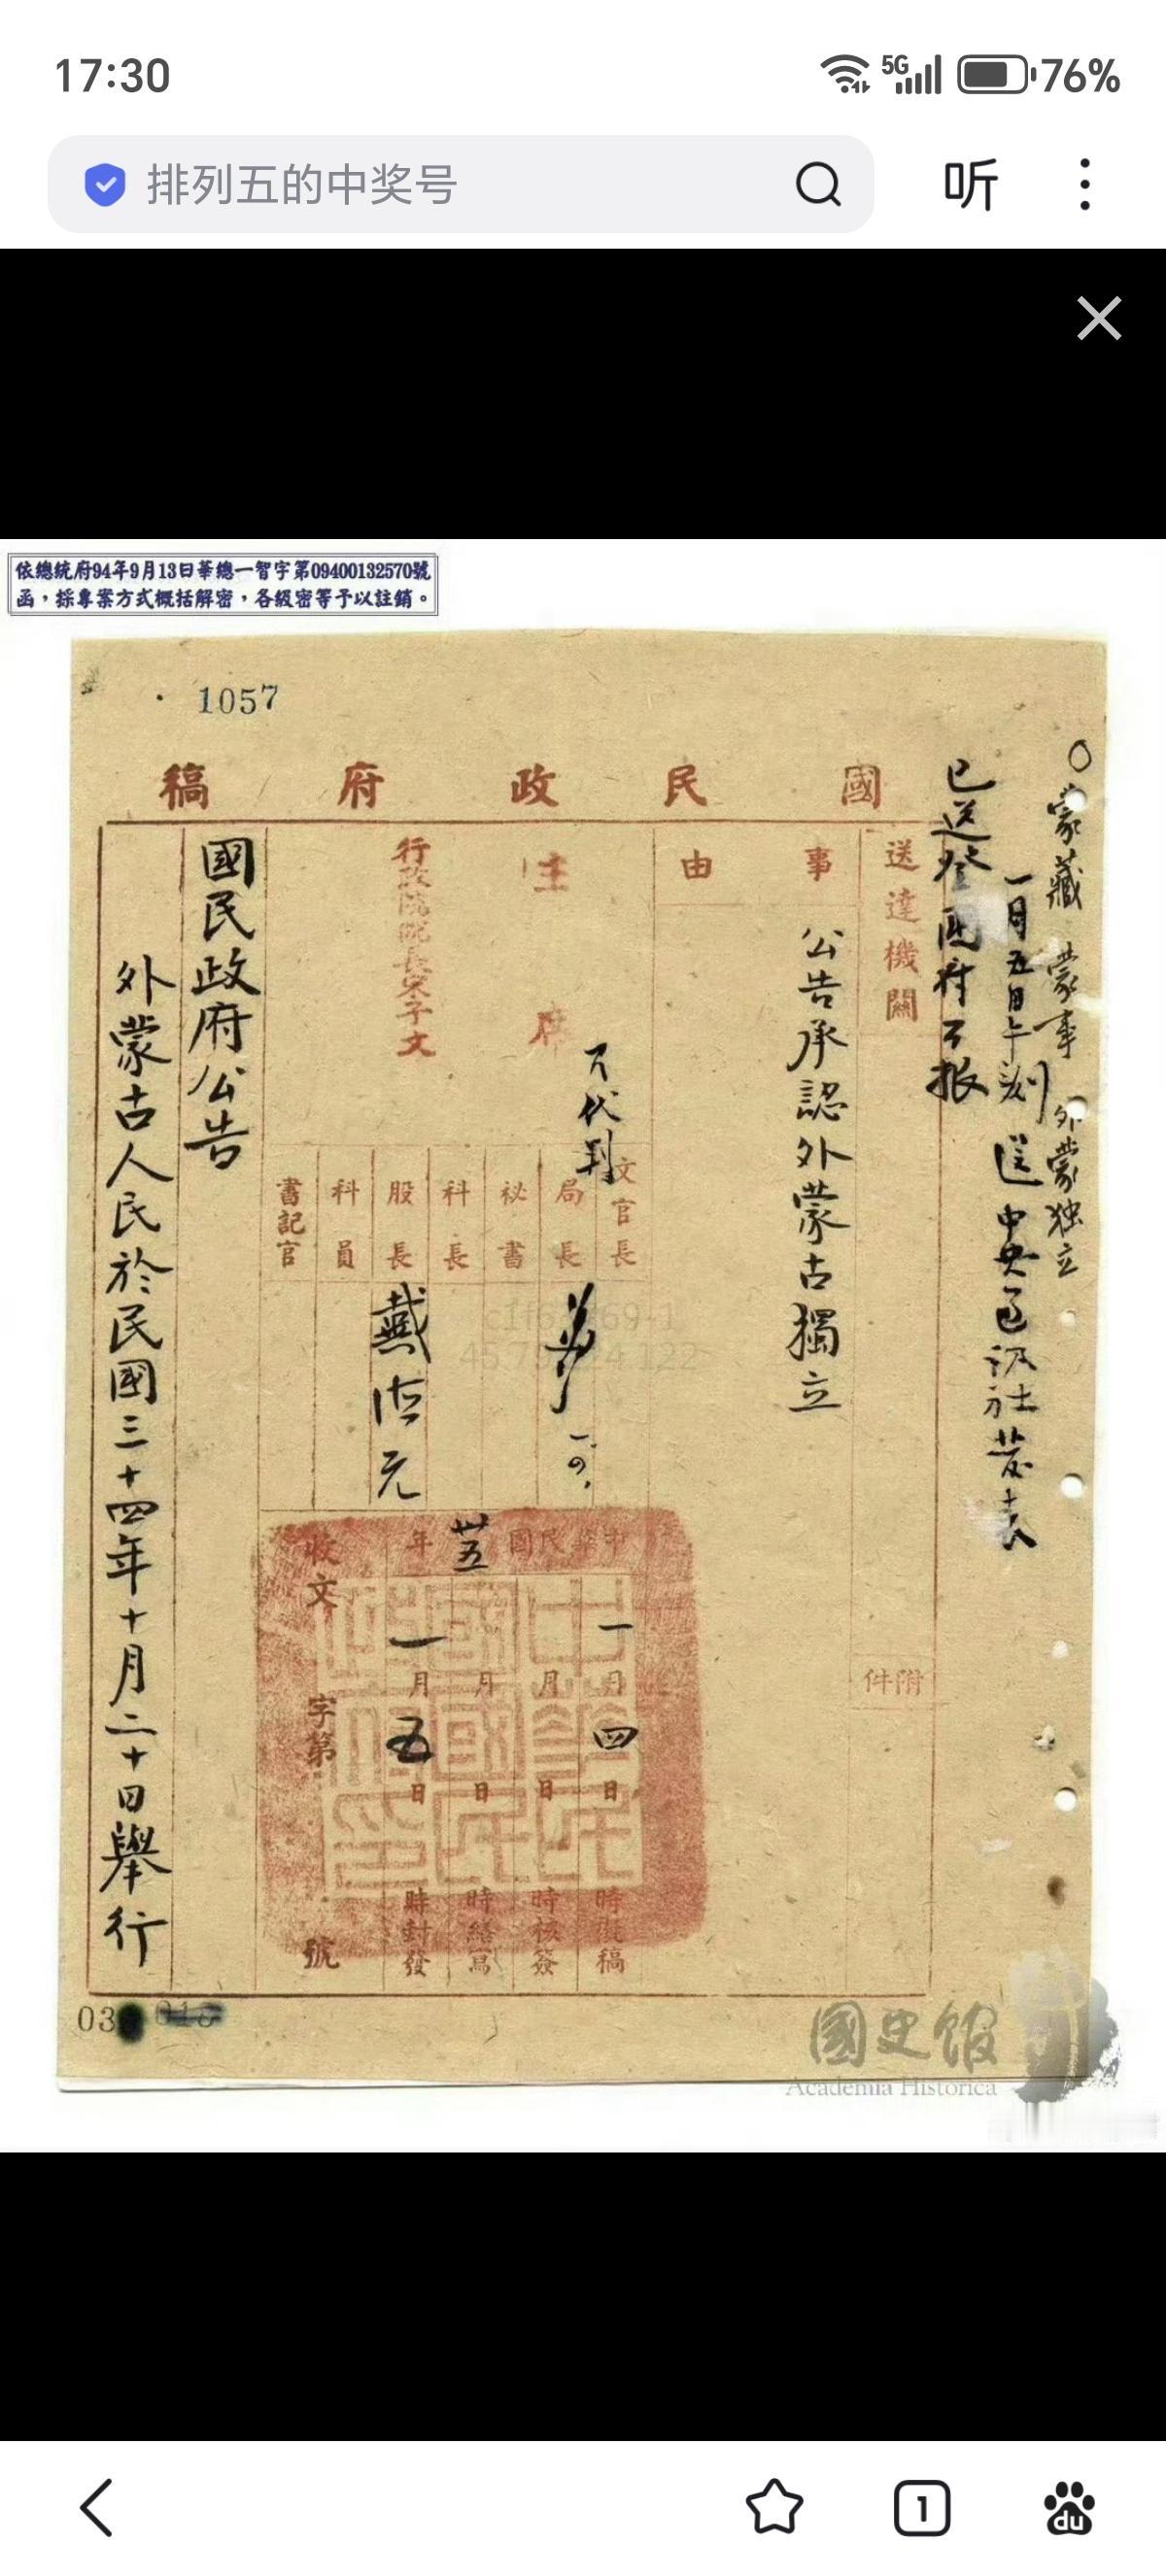 17:30
5G
76%
排列五的中奖号
听
依總統府94年9月13日華總一智字第09400132570號
函，採專案方式概括解密，各級密等予以註銷。
1057
國民政府稿
蒙藏 蒙事 外蒙独立
一月五日午刻 送中央通訊社發表
已送登國府公报
送達機關
附件
事由
公告承認外蒙古獨立
主席
行政院院長宋子文
代判
文官長
局長
祕書
科長
股長
科員
書記官
戴
元
中華民國卅五年
一月四日
時擬稿
月
日
時核簽
月
日
時繕寫
一月五日
時封發
收文
字第
號
國民政府公告
外蒙古人民於民國三十四年十月二十日舉行
03
國史館
Academia Historica
1
du